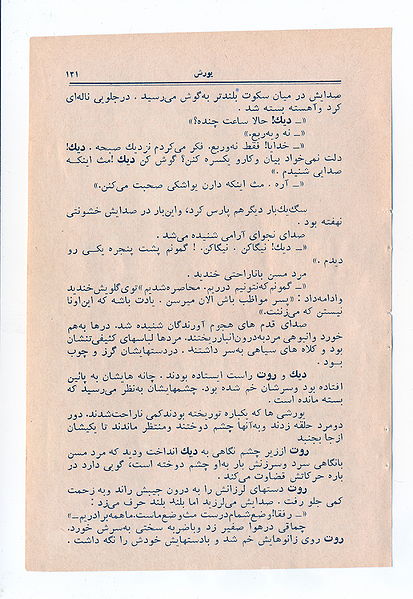 یورش
۱۲۱
صدایش در میان سکوت بلندتر به‌گوش می‌رسید . درجلویی ناله‌ای
کرد وآهسته بسته شد .
«ـ دیك! حالا ساعت چنده؟»
«ـ نه وبه‌ربع.»
«ـ خدایا! فقط نه‌وربع. فکر می‌کردم نزدیك صبحه . دیك!
دلت نمی‌خواد بیان وکارو یکسره کنن؟ گوش کن دیك !مث اینکه
صدایی شنیدم .»
«ـ آره . مث اینکه دارن یواشکی صحبت می‌کنن.»
سگ‌یك‌بار دیگرهم پارس کرد، واین‌بار در صدایش خشونتی
نهفته بود .
صدای نجوای آرامی شنیده می‌شد .
«ـ دیك! نیگاکن . نیگاکن. ! گمونم پشت پنجره یکی رو
دیدم .»
مرد مسن باناراحتی خندید .
«ـ گمونم‌که‌نتونیم درریم. محاصره‌شدیم»توی‌گلویش‌خندید
وادامه‌داد: «پسر مواظب باش الان میرسن . یادت باشه که این‌اونا
نیستن که می‌زننت.»
صدای قدم های هجوم آورندگان شنیده شد. درها به‌هم
خورد وانبوهی مردبه‌درون‌انبارریختند. مردها لباسهای کثیفی‌تنشان
بود و کلاه های سیاهی به‌سر داشتند . دردستهایشان گرز و چوب
بود .
دیك و روت راست ایستاده بودند . چانه هایشان به پائین
افتاده بود وسرشان خم شده بود. چشمهایشان به‌نظر می‌رسید که
بسته مانده است .
یورشی ها که یکباره توریخته بودندکمی ناراحت‌شدند. دور
دومرد حلقه زدند وبه‌آنها چشم دوختند ومنتظر ماندند تا یکیشان
ازجا بجنبد
روت اززیر چشم نگاهی به دیك انداخت ودید که مرد مسن
بانگاهی سرد وسرزنش بار به‌او چشم دوخته است، گویی دارد در
باره حرکاتش قضاوت می‌کند .
روت دستهای لرزانش را به درون جیبش راند وبه زحمت
کمی جلو رفت . صدایش می‌لرزید اما بلند بلند حرف می‌زد :
«ـ رفقا!وضع‌شمام‌درست مث‌وضع‌ماست.ماهمه‌برادریم‌ـ»
چماقی درهوا صفیر زد وباضربه سختی به‌سرش خورد.
روت روی زانوهایش خم شد و بادستهایش خودش را نگه داشت .